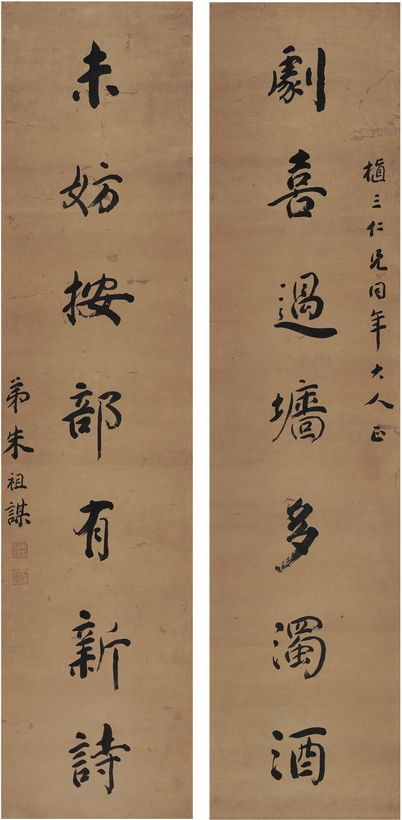 槙三仁兄同年大人正
劇喜過墻多濁酒
未妨按部有新詩
弟朱祖謀